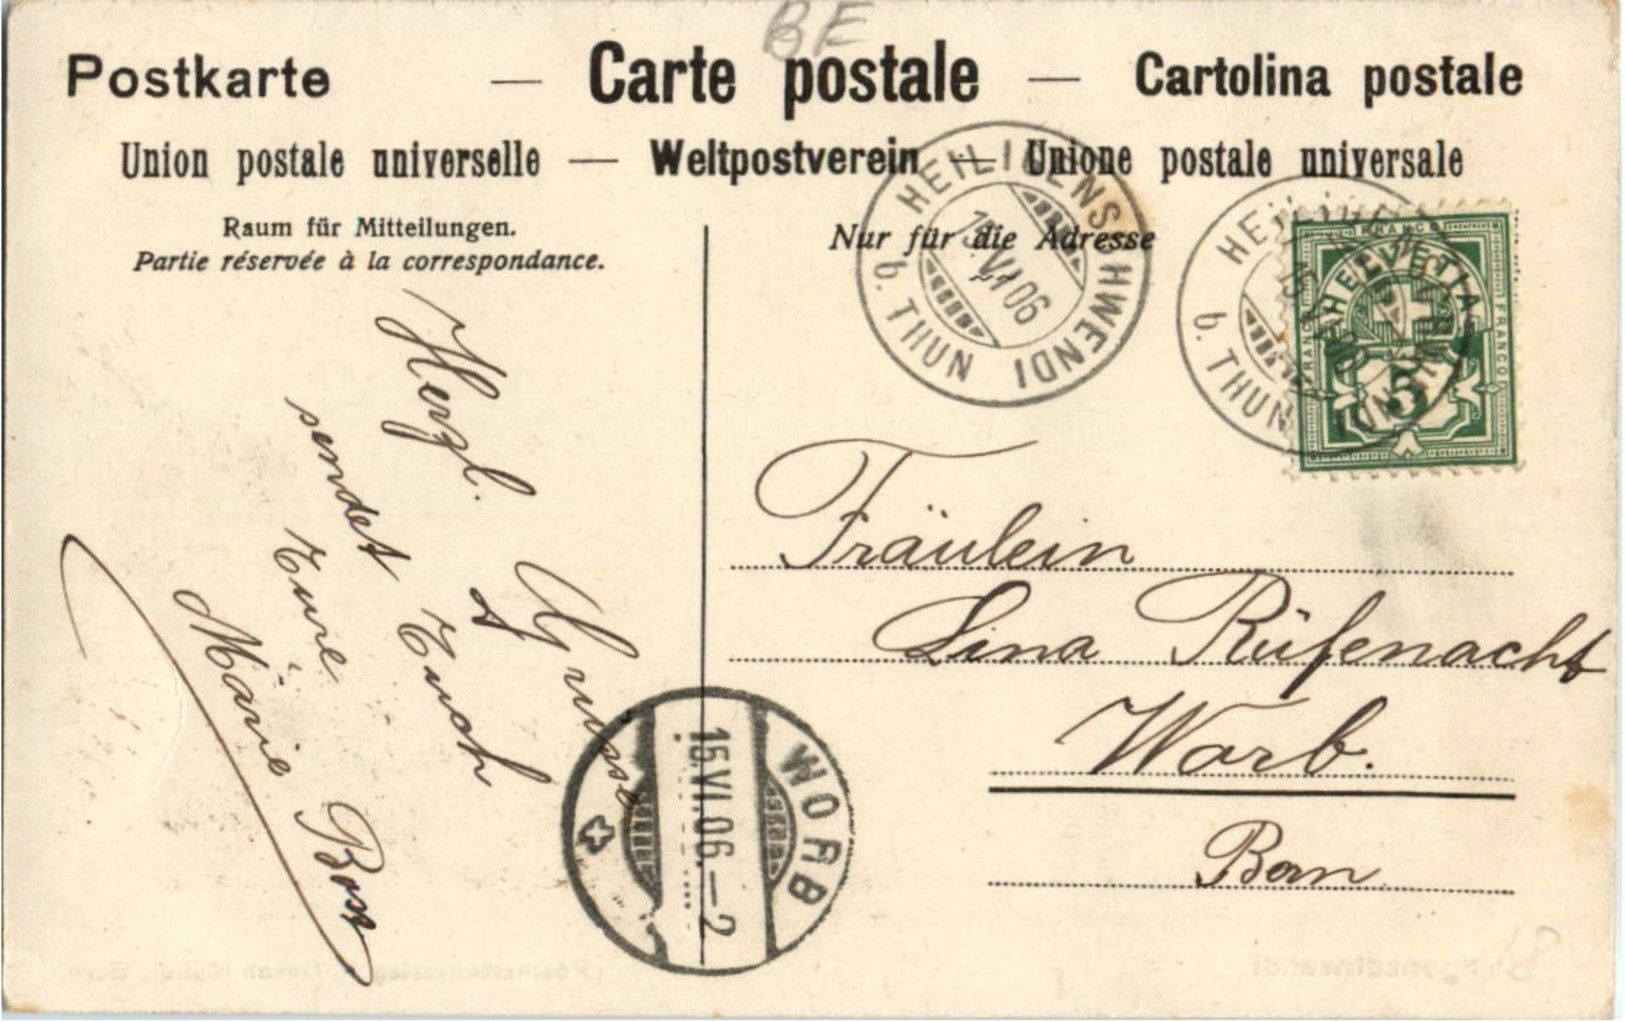 BE
Postkarte — Carte postale — Cartolina postale
Union postale universelle — Weltpostverein — Unione postale universale
Raum für Mitteilungen.
Partie réservée à la correspondance.
Nur für die Adresse
HEILIGENSCHWENDI
b. THUN
15.VI.06
HEILIGENSCHWENDI
b. THUN
FRANCO
HELVETIA
FRANCO
FRANCO
5
Herzl. Gruss
sendet Euch
Eure
Marie Boss
Fräulein
Lina Rüfenacht
Worb.
Bern
WORB
15.VI.06.–2